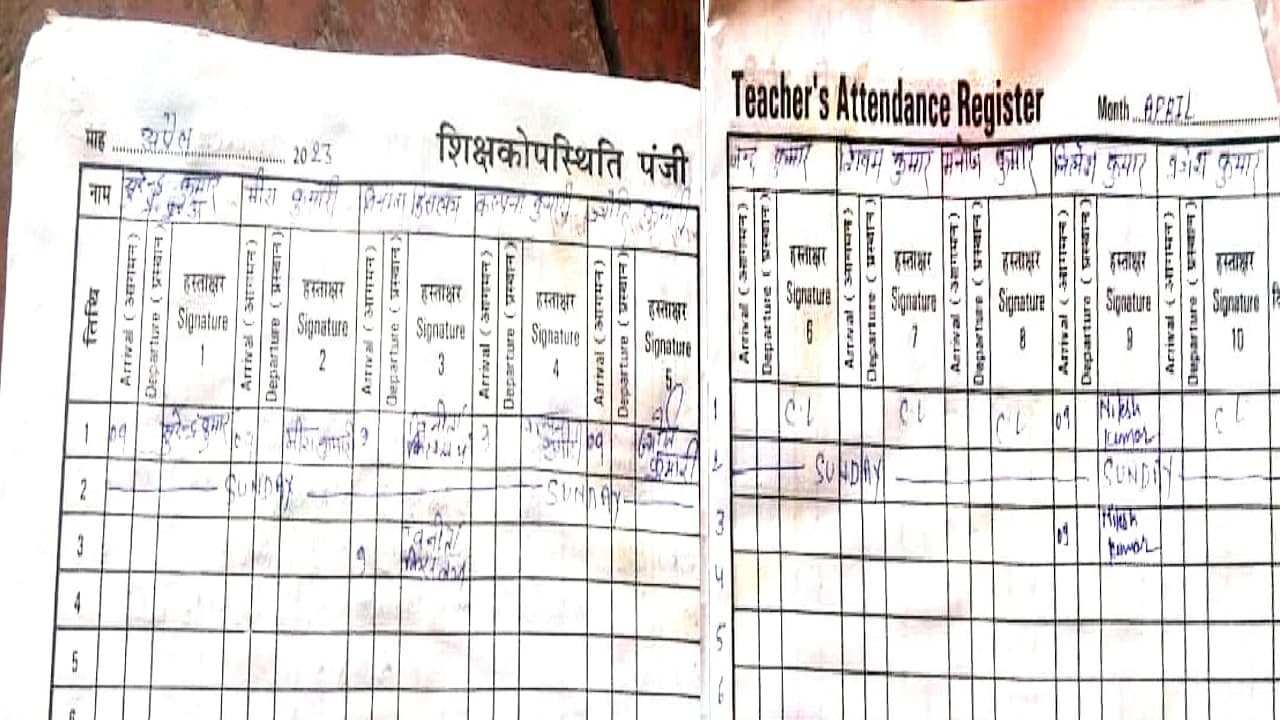 माह अप्रैल 2023
शिक्षकोपस्थिति पंजी
नाम सुरेन्द्र कुमार मीरा कुमारी कल्पना कुमारी
तिथि
Arrival ( आगमन ) Departure ( प्रस्थान ) हस्ताक्षर Signature 1
Arrival ( आगमन ) Departure ( प्रस्थान ) हस्ताक्षर Signature 2
Arrival ( आगमन ) Departure ( प्रस्थान ) हस्ताक्षर Signature 3
Arrival ( आगमन ) Departure ( प्रस्थान ) हस्ताक्षर Signature 4
Arrival ( आगमन ) Departure ( प्रस्थान ) हस्ताक्षर Signature
1 09 सुरेन्द्र कुमार मीरा कुमारी 9 09 कुमारी
2 SUNDAY SUNDAY
3 9
4
5
Teacher's Attendance Register
Month APRIL
कुमार कुमार मनोज कुमार निलेश कुमार कुमार
Arrival ( आगमन ) Departure ( प्रस्थान ) हस्ताक्षर Signature 6
Arrival ( आगमन ) Departure ( प्रस्थान ) हस्ताक्षर Signature 7
Arrival ( आगमन ) Departure ( प्रस्थान ) हस्ताक्षर Signature 8
Arrival ( आगमन ) Departure ( प्रस्थान ) हस्ताक्षर Signature 9
Arrival ( आगमन ) Departure ( प्रस्थान ) हस्ताक्षर Signature 10
1 CL CL CL 09 Nilesh kumar CL
2 SUNDAY SUNDAY
3 09 Nilesh kumar
4
5
6